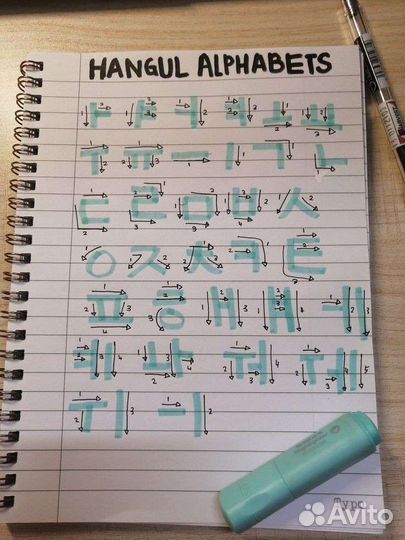 HANGUL ALPHABETS
ㅏ ㅑ ㅓ ㅕ ㅗ ㅛ
ㅜ ㅠ ㅡ ㅣ ㄱ ㄴ
ㄷ ㄹ ㅁ ㅂ ㅅ
ㅇ ㅈ ㅊ ㅋ ㅌ
ㅍ ㅎ ㅐ ㅒ ㅔ
ㅖ ㅘ ㅝ ㅞ
ㅟ ㅢ
Avito